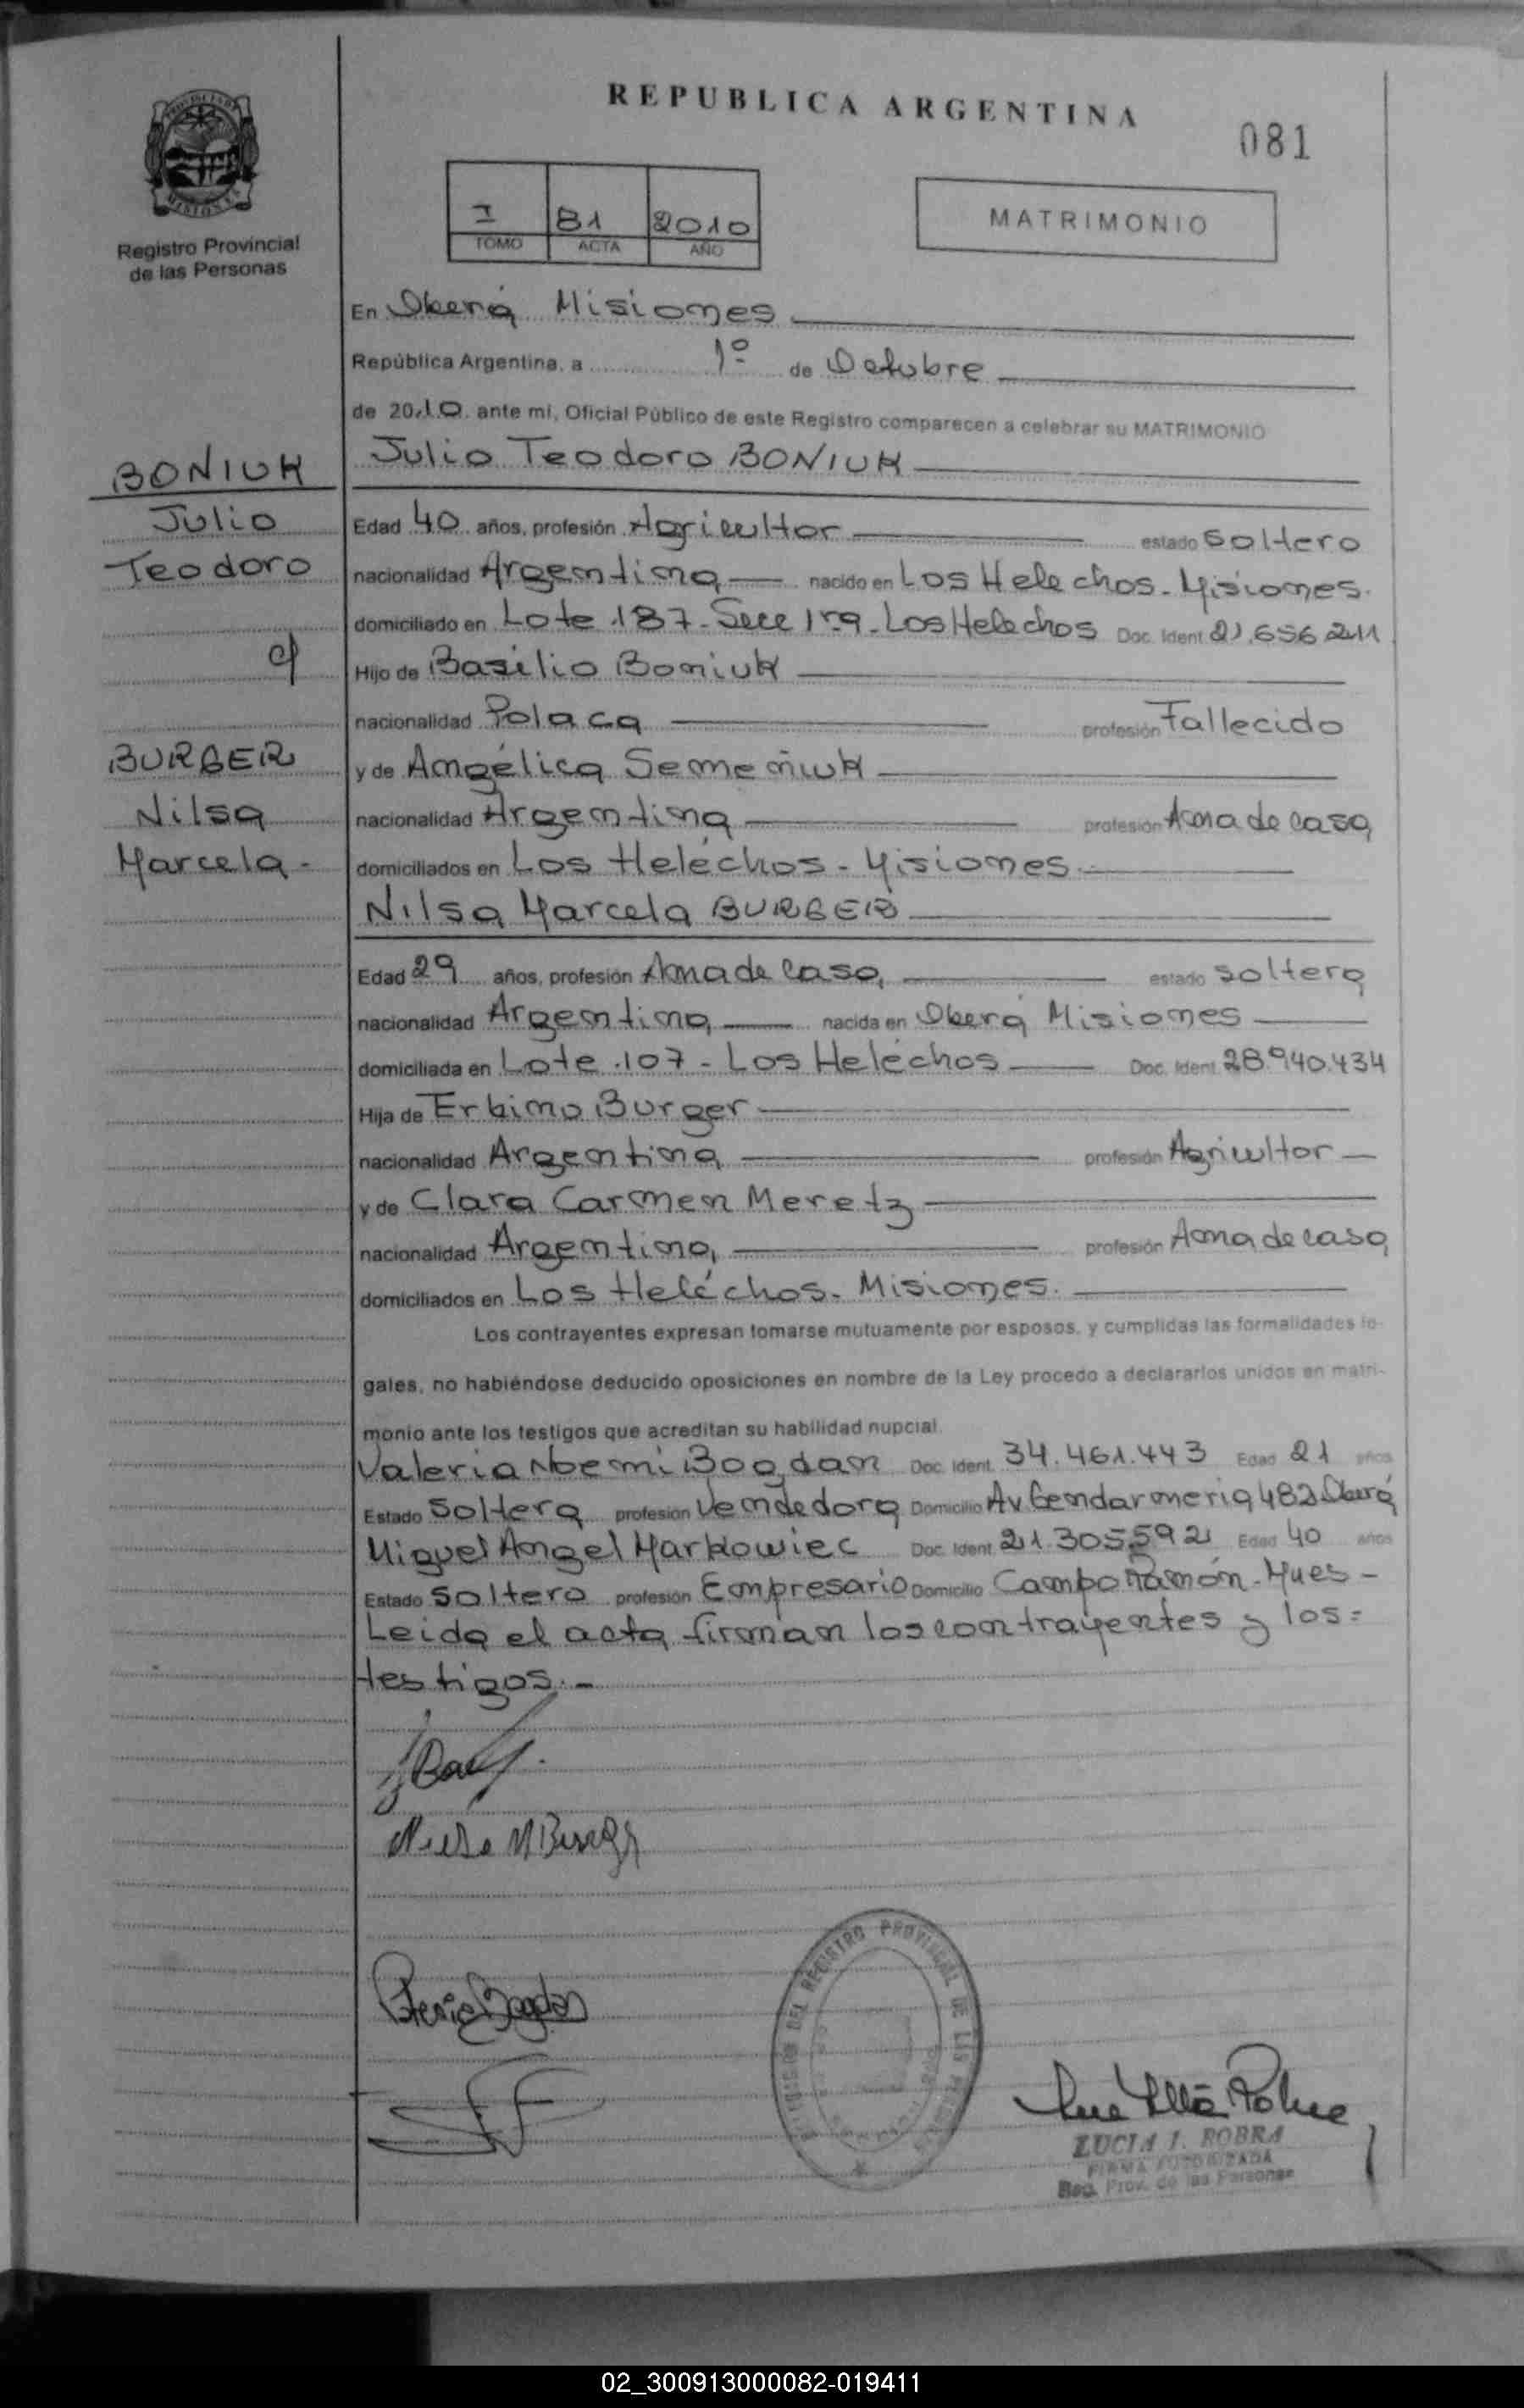 REPUBLICA ARGENTINA
081
PROVINCIA DE
MISIONES
Registro Provincial
de las Personas
I 81 2010
TOMO ACTA AÑO
MATRIMONIO
En Oberá Misiones
República Argentina, a 1º de Octubre
de 2010 ante mi, Oficial Público de este Registro comparecen a celebrar su MATRIMONIO
BONIUK
Julio
Teodoro
c/
BURGER
Nilsa
Marcela.-
Julio Teodoro BONIUK
Edad 40 años, profesión Agricultor estado Soltero
nacionalidad Argentina nacido en Los Helechos - Misiones.
domiciliado en Lote 187 - Secc 1ra - Los Helechos Doc. Ident 21.656.211
Hijo de Basilio Boniuk
nacionalidad Polaca profesión Fallecido
y de Angélica Semeñiuk
nacionalidad Argentina profesión Ama de casa
domiciliados en Los Heléchos - Misiones.
Nilsa Marcela BURGER
Edad 29 años, profesión Ama de casa, estado soltera
nacionalidad Argentina nacida en Oberá Misiones
domiciliada en Lote 107 - Los Heléchos Doc. Ident. 28.940.434
Hija de Erbino Burger
nacionalidad Argentina profesión Agricultor
y de Clara Carmen Meretz
nacionalidad Argentina, profesión Ama de casa
domiciliados en Los Heléchos - Misiones.
Los contrayentes expresan tomarse mutuamente por esposos, y cumplidas las formalidades le-
gales, no habiéndose deducido oposiciones en nombre de la Ley procedo a declararlos unidos en matri-
monio ante los testigos que acreditan su habilidad nupcial.
Valeria Noemi Bogdan Doc. Ident. 34.461.443 Edad 21 años
Estado Soltera profesión Vendedora Domicilio Av. Gendarmeria 482 Oberá
Miguel Angel Markowiec Doc. Ident. 21.305.592 Edad 40 años
Estado Soltero profesión Empresario Domicilio Campo Ramón - Mnes -
Leida el acta firman los contrayentes y los =
testigos.-
LUCIA I. ROBRA
FIRMA AUTORIZADA
Reg. Prov. de las Personas
02_300913000082-019411